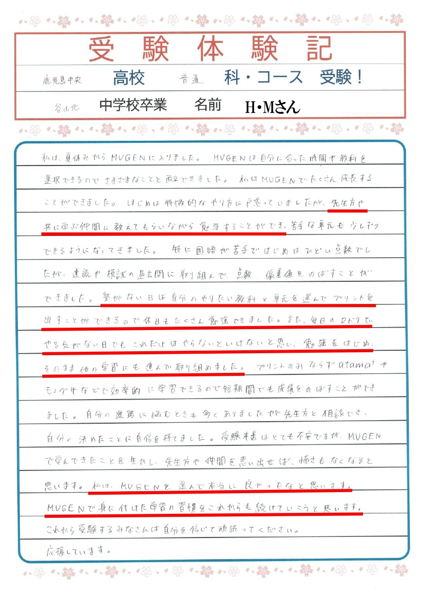 受験体験記
鹿児島中央 高校 普通 科・コース 受験！
谷山北 中学校卒業 名前 H・Mさん
私は、夏休みからMUGENに入りました。MUGENは自分に合った時間や教科を
選択できるのでさまざまなことと両立できました。私はMUGENでたくさん成長する
ことができました。はじめは特徴的なやり方に戸惑っていましたが、先生方や
共に学ぶ仲間に教えてもらいながら勉強することができ、苦手な単元も少しずつ
できるようになってきました。特に国語が苦手ではじめはひどい点数でし
たが、速読や模試の過去問に取り組んで、点数、偏差値をのばすことが
できました。塾がない日は自分のやりたい教科と単元を選んでプリントを
出すことができるので休日もたくさん勉強できました。また、毎日のひだまで、
やる気がない日でもこれだけはやらないといけないと思い、勉強をはじめ、
そのまま他の学習にも進んで取り組めました。プリントのみならずatama+や
モノグサなどで効率的に学習できるので短期間でも成績をのばすことができ
ました。自分の進路に悩むときも多くありましたが先生方と相談でき、
自分の決めたことに自信を持てました。受験本番はとても不安ですが、MUGEN
で学んできたことを生かし、先生方や仲間を思い出せば、怖さもなくなると
思います。私は、MUGENを選んで本当に良かったなと思います。
MUGENで身に付けた学習の習慣をこれからも続けていこうと思います。
これから受験するみなさんは自分を信じて頑張ってください。
応援しています。